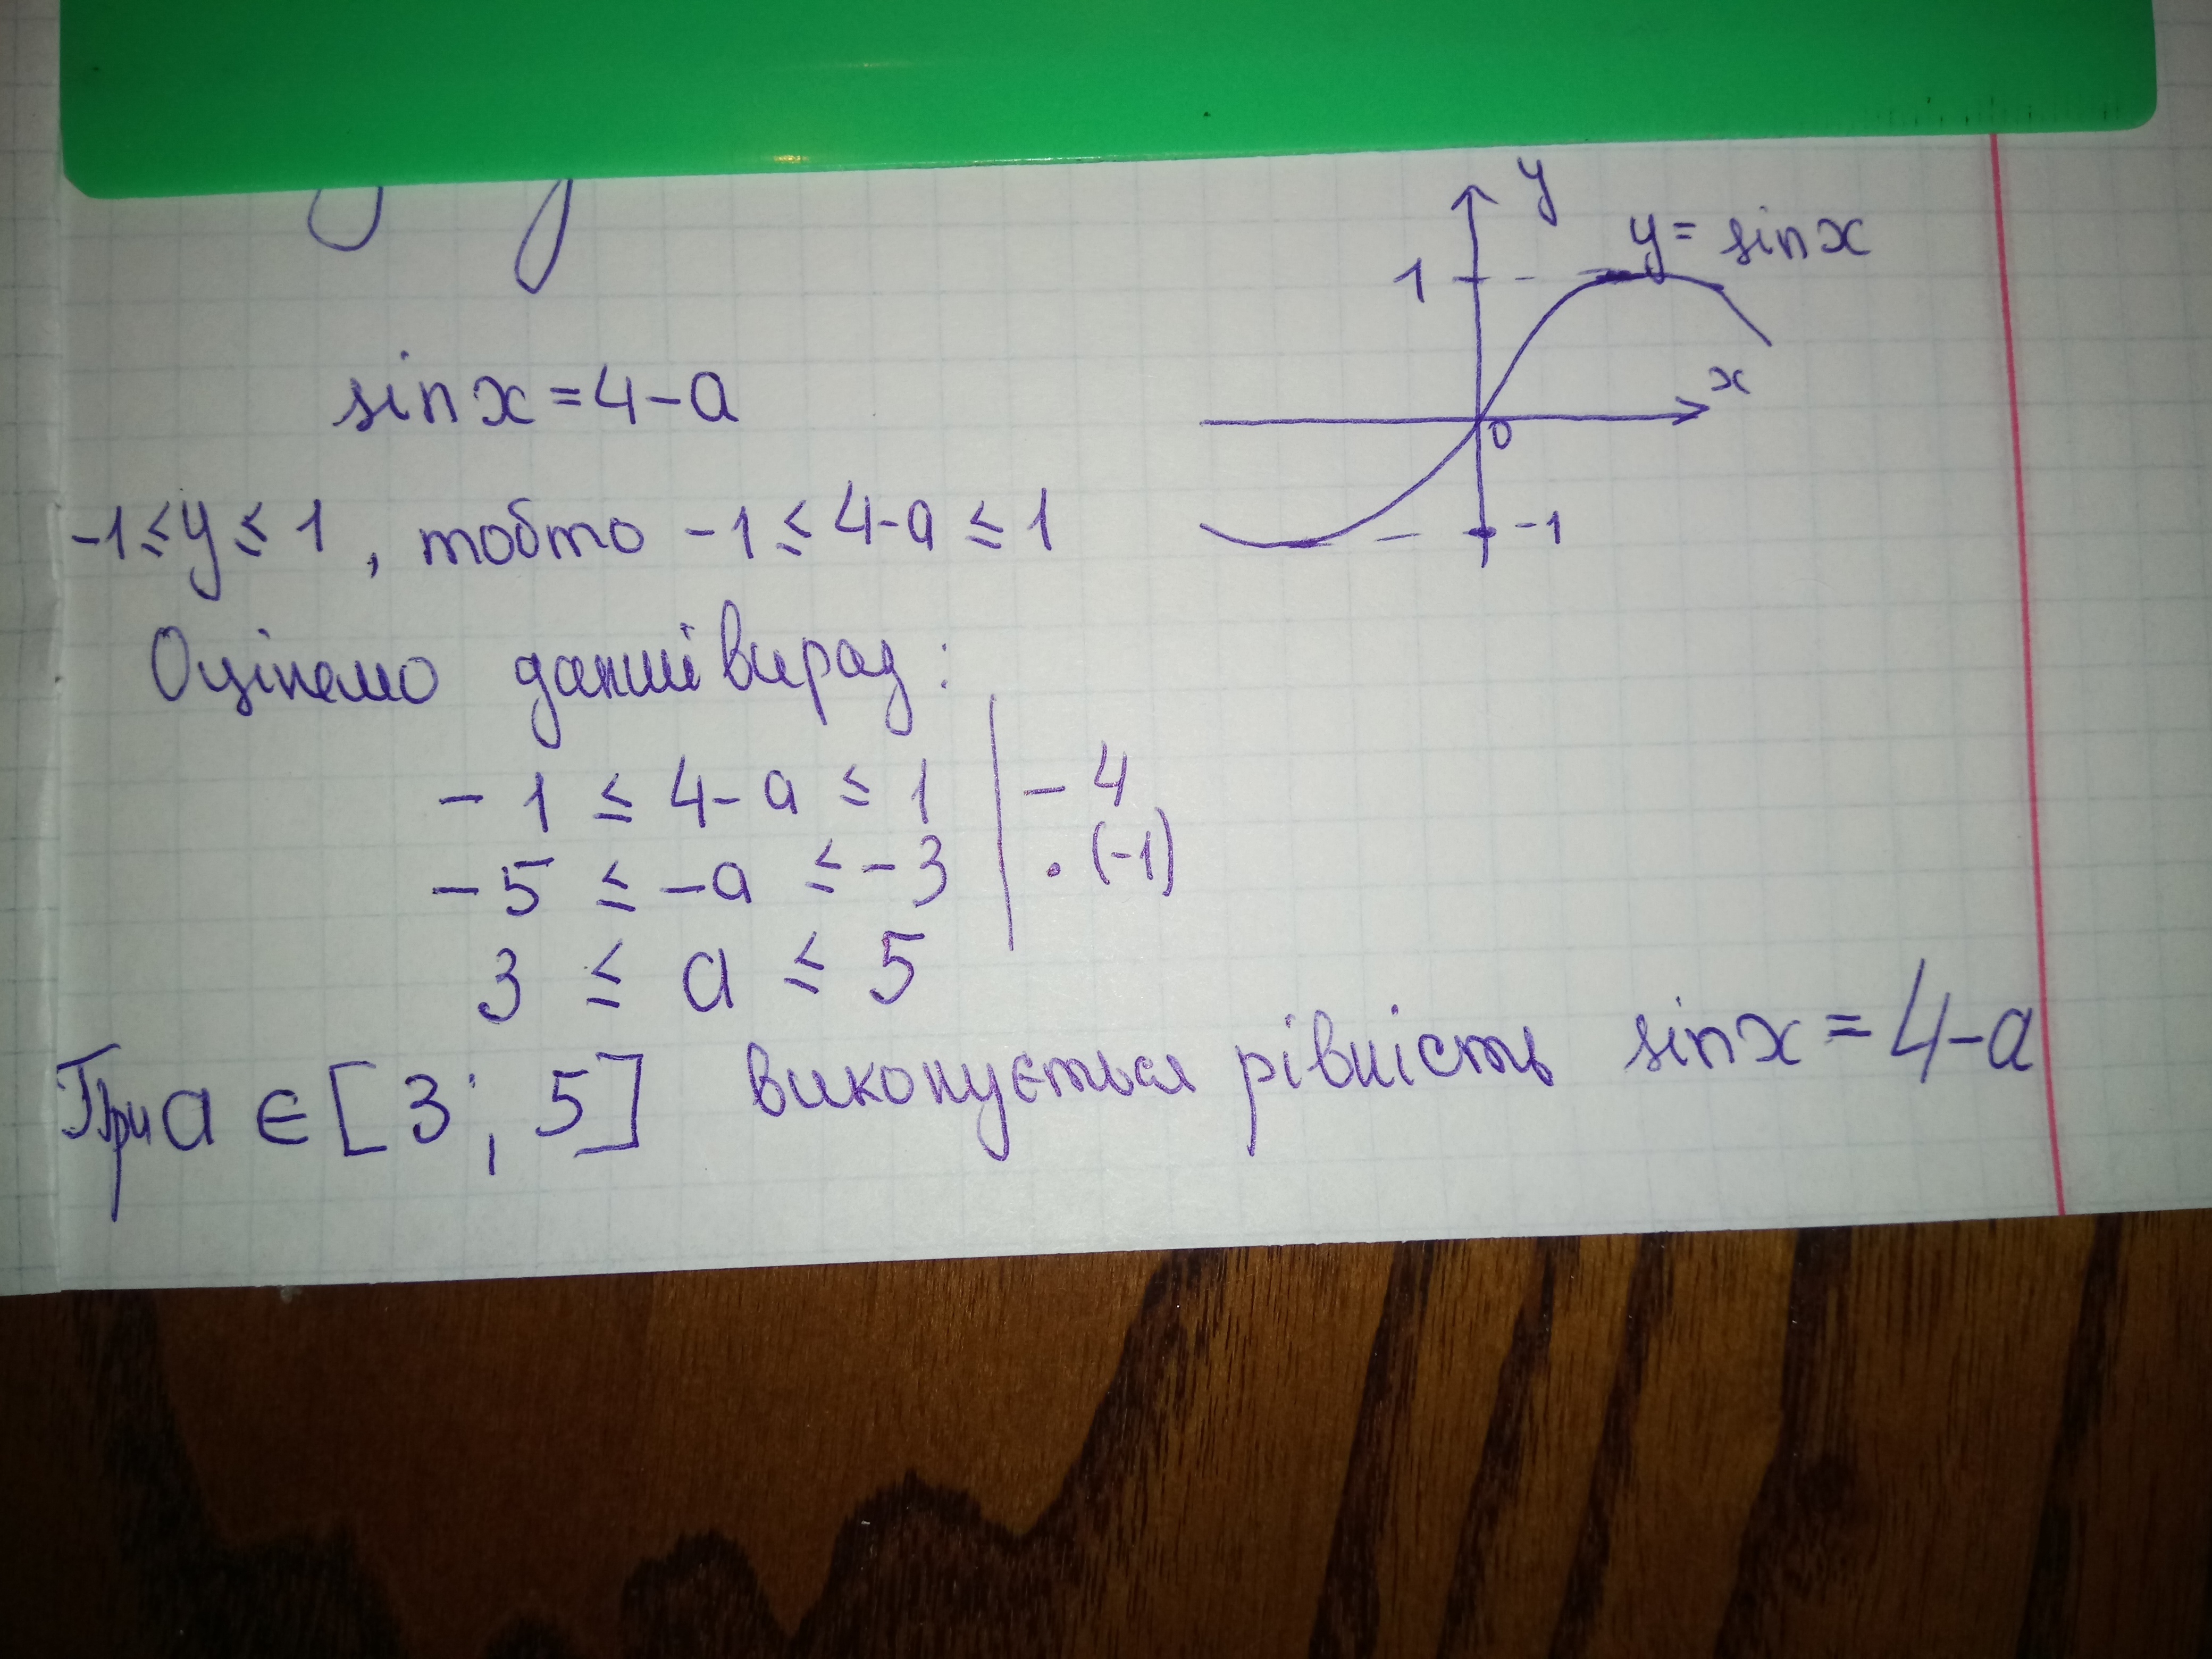 y
y = sin x
1
x
0
-1
sin x = 4 - a
-1 ≤ y ≤ 1, тобто -1 ≤ 4-a ≤ 1
Оцінемо даний вираз:
-1 ≤ 4-a ≤ 1 | -4
-5 ≤ -a ≤ -3 | · (-1)
3 ≤ a ≤ 5
При a ∈ [3; 5] виконується рівність sin x = 4-a